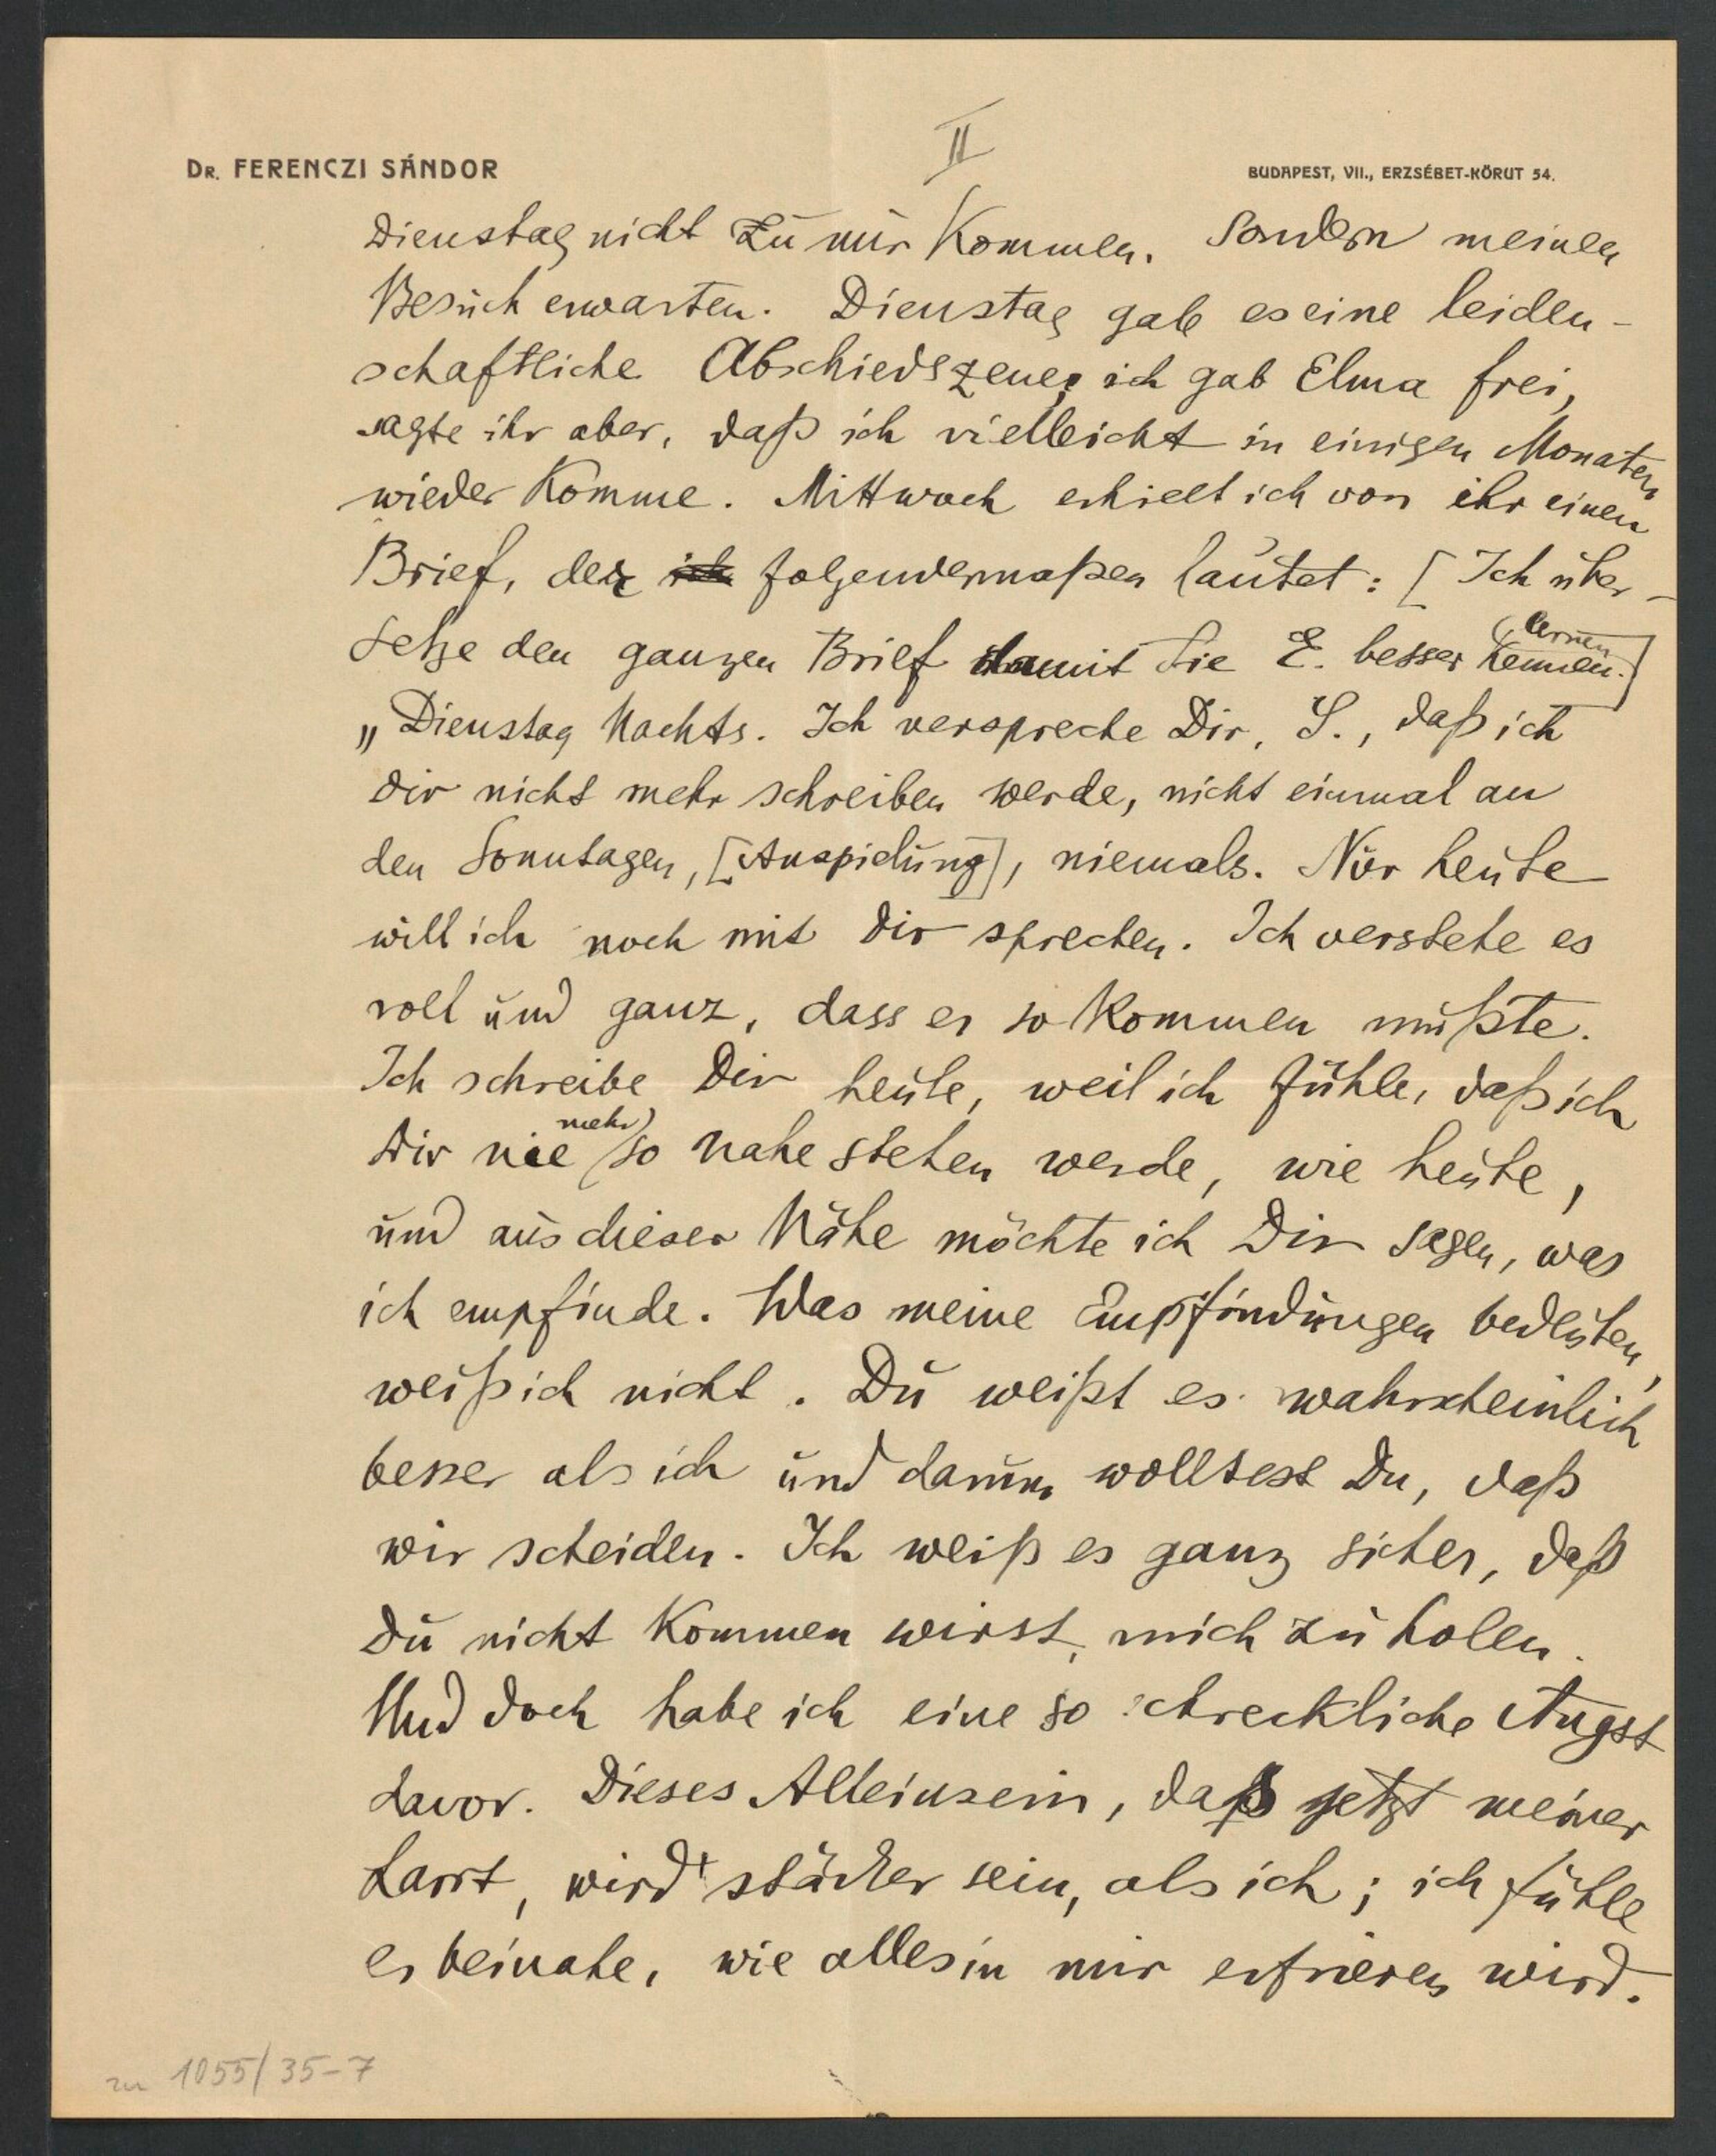 II
DR. FERENCZI SÁNDOR
BUDAPEST, VII., ERZSÉBET-KÖRUT 54.
Dienstag nicht zu mir kommen. Sondern meinen
Besuch erwarten. Dienstag gab es eine leiden-
schaftliche Abschiedszene; ich gab Elma frei,
sagte ihr aber, daß ich vielleicht in einigen Monaten
wieder komme. Mittwoch erhielt ich von ihr einen
Brief, der ich folgendermaßen lautet: [Ich über-
setze den ganzen Brief damit Sie E. besser kennen lernen.]
„Dienstag Nachts. Ich verspreche Dir, S., daß ich
Dir nicht mehr schreiben werde, nicht einmal an
den Sonntagen, [Anspielung], niemals. Nur heute
will ich noch mit Dir sprechen. Ich verstehe es
voll und ganz, dass es so kommen mußte.
Ich schreibe Dir heute, weil ich fühle, daß ich
Dir nie mehr so nahe stehen werde, wie heute,
und aus dieser Nähe möchte ich Dir sagen, was
ich empfinde. Was meine Empfindungen bedeuten,
weiß ich nicht. Du weißt es wahrscheinlich
besser als ich und darum wolltest Du, daß
wir scheiden. Ich weiß es ganz sicher, daß
Du nicht kommen wirst, mich zu holen.
Und doch habe ich eine so schreckliche Angst
davor. Dieses Alleinsein, daß jetzt meiner
harrt, wird stärker sein, als ich; ich fühle
es beinahe, wie alles in mir erfrieren wird.
zu 1055/35-7